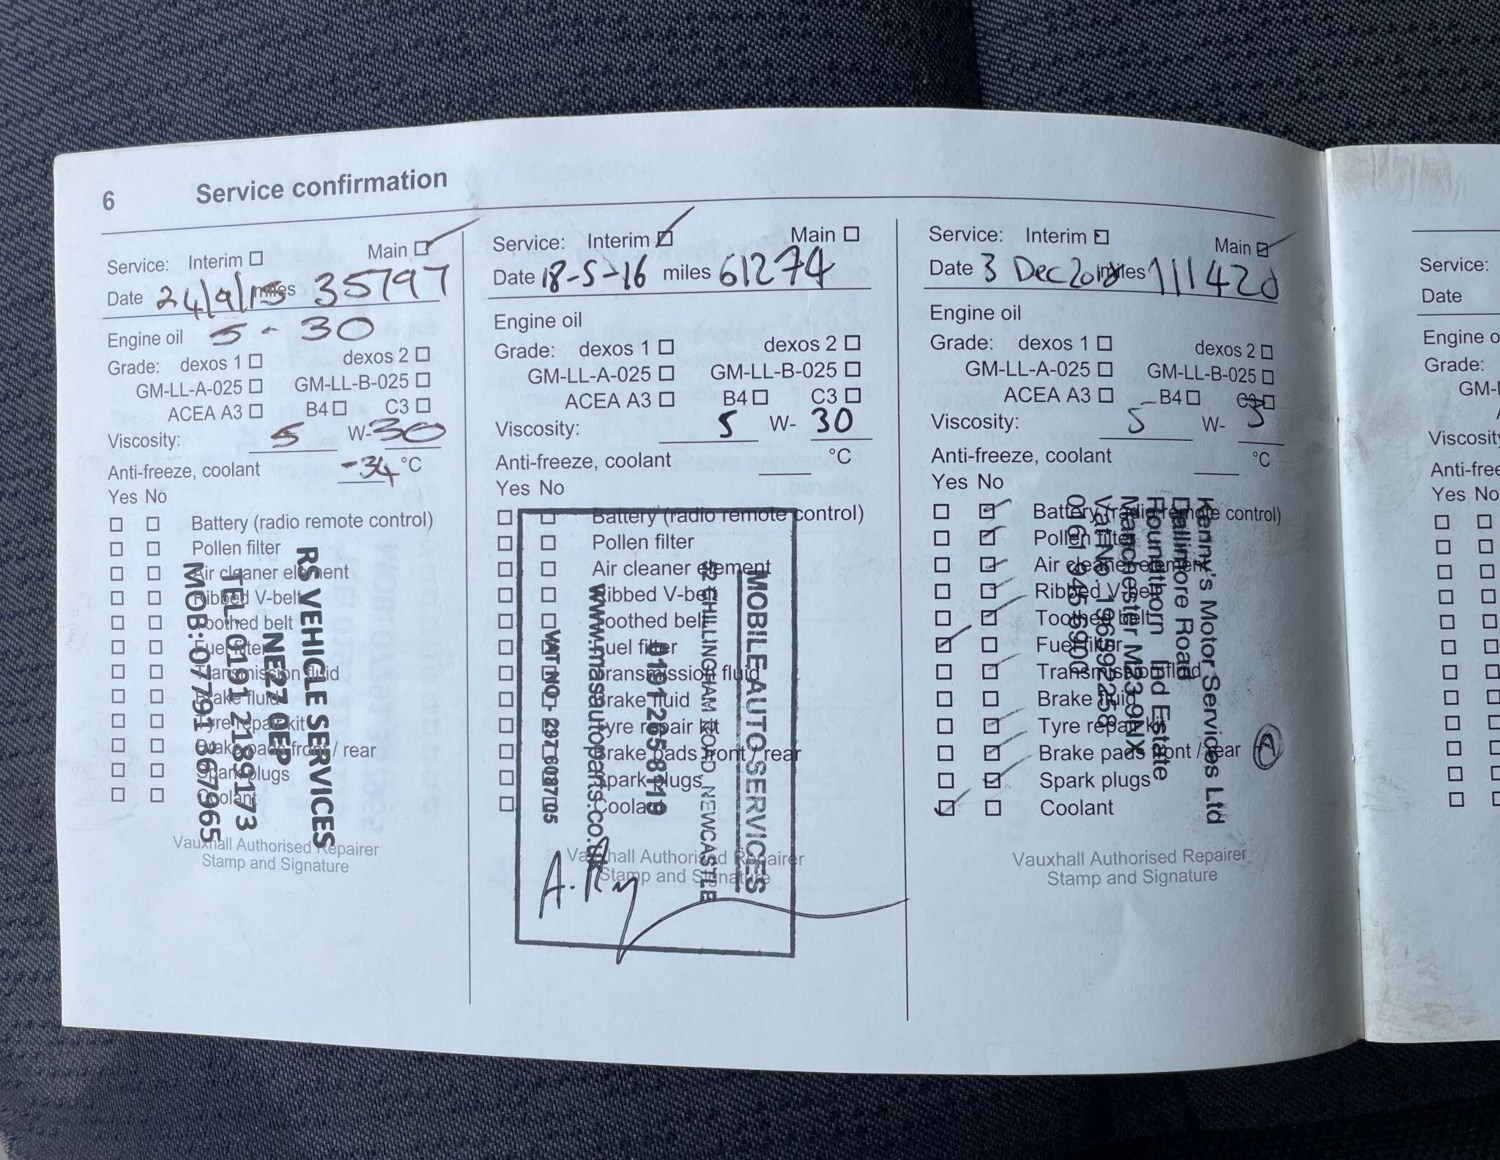 6 Service confirmation
Service: Interim Main
Date 24/9/15 miles 35797
Engine oil 5 - 30
Grade: dexos 1 dexos 2
GM-LL-A-025 GM-LL-B-025
ACEA A3 B4 C3
Viscosity: 5 W-30
Anti-freeze, coolant -34 °C
Yes No
Battery (radio remote control)
Pollen filter
Air cleaner element
Ribbed V-belt
Toothed belt
Fuel filter
Transmission fluid
Brake fluid
Tyre repair kit
Brake pads front / rear
Spark plugs
Coolant
RS VEHICLE SERVICES
NE27 0EP
TEL: 0191 2189173
MOB: 07791 367965
Vauxhall Authorised Repairer
Stamp and Signature
Service: Interim Main
Date 18-5-16 miles 61274
Engine oil
Grade: dexos 1 dexos 2
GM-LL-A-025 GM-LL-B-025
ACEA A3 B4 C3
Viscosity: 5 W- 30
Anti-freeze, coolant °C
Yes No
Battery (radio remote control)
Pollen filter
Air cleaner element
Ribbed V-belt
Toothed belt
Fuel filter
Transmission fluid
Brake fluid
Tyre repair kit
Brake pads front / rear
Spark plugs
Coolant
MOBILE AUTO SERVICES
CHILLINGHAM ROAD, NEWCASTLE
0191 2658119
www.masautoparts.co.uk
VAT NO - 297 6087 05
Vauxhall Authorised Repairer
Stamp and Signature
Service: Interim Main
Date 3 Dec 2018 miles 111420
Engine oil
Grade: dexos 1 dexos 2
GM-LL-A-025 GM-LL-B-025
ACEA A3 B4 C3
Viscosity: 5 W-
Anti-freeze, coolant °C
Yes No
Battery (radio remote control)
Pollen filter
Air cleaner element
Ribbed V-belt
Toothed belt
Fuel filter
Transmission fluid
Brake fluid
Tyre repair kit
Brake pads front / rear
Spark plugs
Coolant
Kenny's Motor Services Ltd
Dallimore Road
Roundthorn Ind Estate
Manchester M23 9NX
Vat No. 196592258
0161 945 6900
A
Vauxhall Authorised Repairer
Stamp and Signature
Service:
Date
Grade:
Yes No